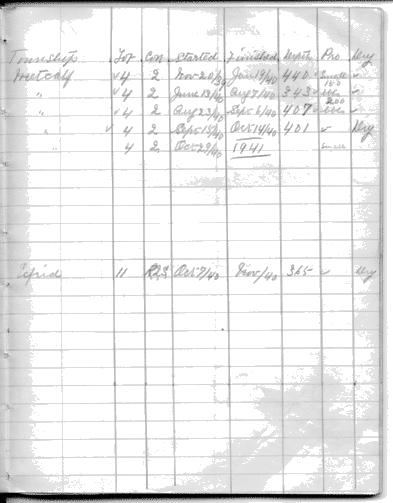 Township Lot Con Started Finished Depth Pro Dry
Metcalf ✓4 2 Nov 20/39 Jan 19/40 440 ✓ Small ✓
150
" ✓4 2 June 19/40 Aug 7/40 343 ✓ bbls ✓
200
" ✓4 2 Aug 23/40 Sept 6/40 407 ✓ bbls ✓
" ✓4 2 Sept 15/40 Oct 14/40 401 ✓ Dry
" 4 2 Oct 29/40 1941 Small
Ecfrid 11 Oct 7/40 Nov/40 365 ✓ Dry